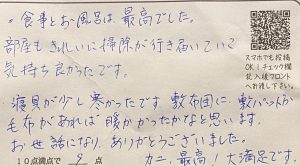 ・食事とお風呂は、最高でした。
部屋もきれいに掃除が行き届いていて
気持ち良かったです。
寝具が少し寒かったです 敷布団に、敷パットか
毛布があれば暖かかったかなと思います。
お世話になり、ありがとうございました。
10点満点で 9 点 カニ、最高!大満足です
スマホでも投稿
OK!チェック欄
記入後フロント
へお渡し下さい。